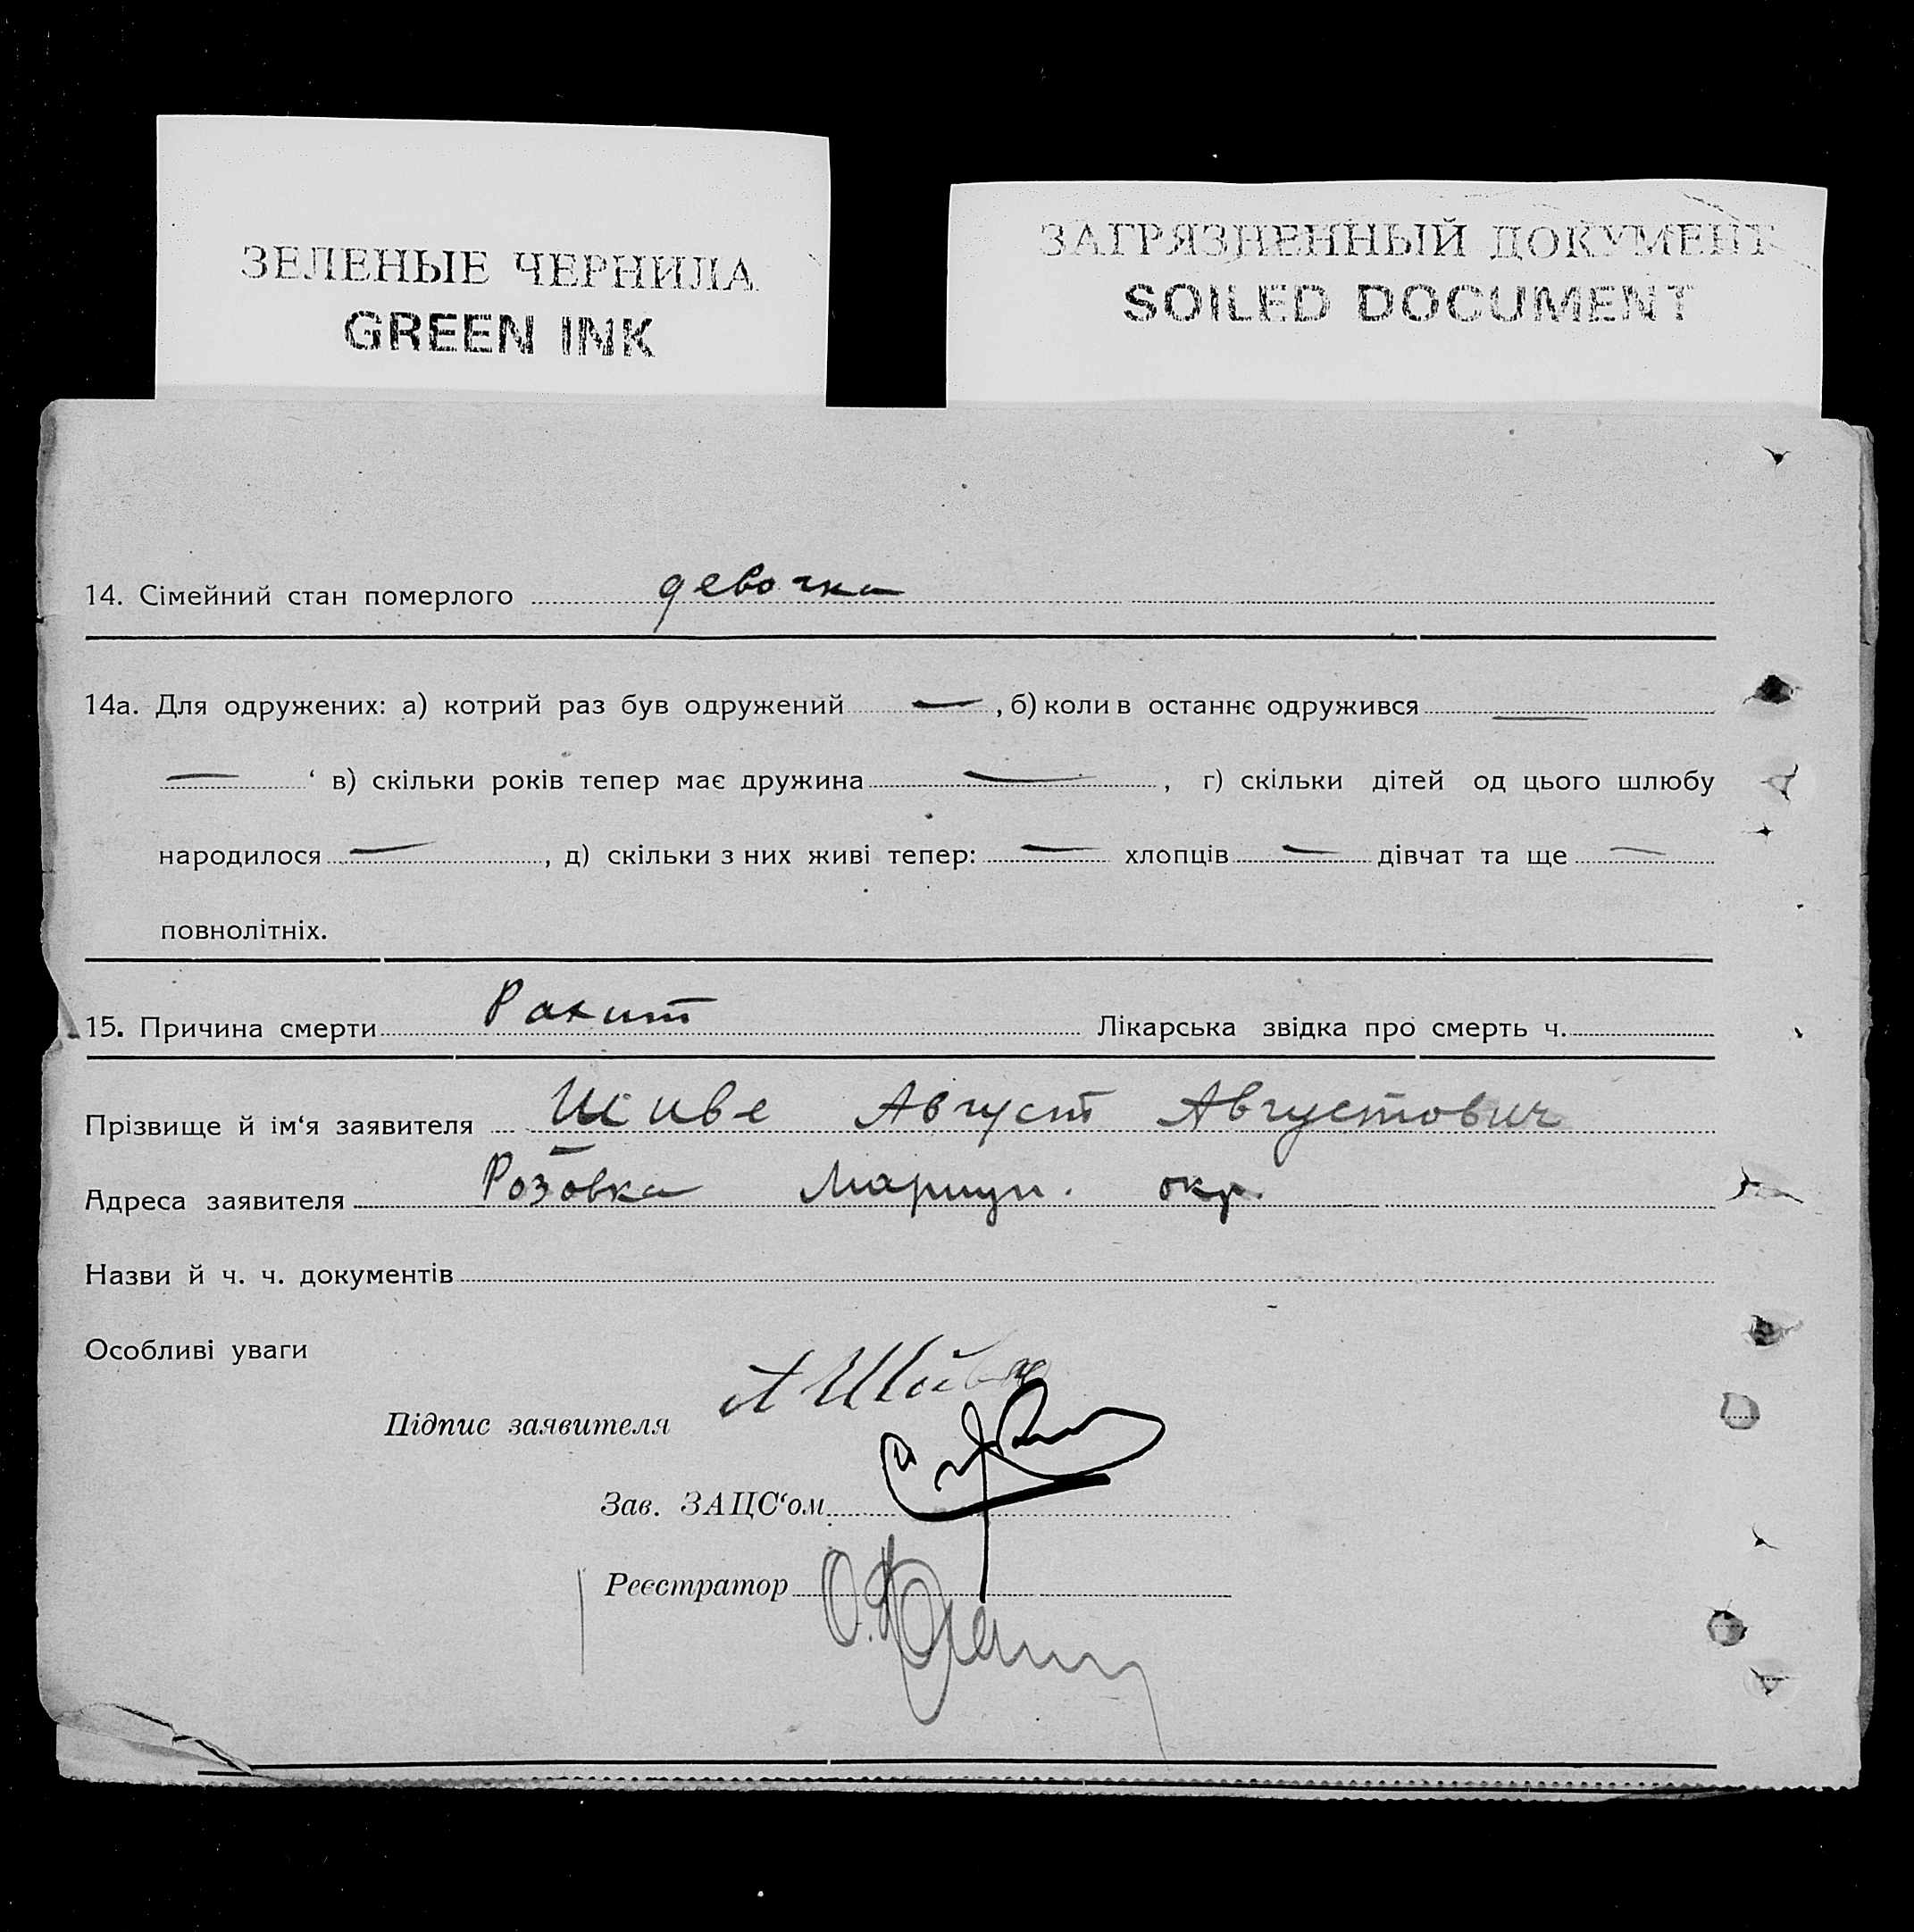 ЗЕЛЕНЫЕ ЧЕРНИЛА
GREEN INK
ЗАГРЯЗНЕННЫЙ ДОКУМЕНТ
SOILED DOCUMENT
14. Сімейний стан померлого девочка
14а. Для одружених: а) котрий раз був одружений — , б) коли в останнє одружився —
— ‘ в) скільки років тепер має дружина — , г) скільки дітей од цього шлюбу
народилося — , д) скільки з них живі тепер: — хлопців — дівчат та ще —
повнолітніх.
15. Причина смерти Рахит Лікарська звідка про смерть ч.
Прізвище й ім‘я заявителя Шиве Август Августович
Адреса заявителя Розовка Мариуп. окр.
Назви й ч. ч. документів
Особливі уваги
Підпис заявителя А Шиве
Зав. ЗАЦС‘ом
Реєстратор